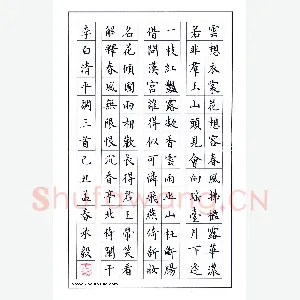 雲想衣裳花想容春風拂檻露華濃
若非群玉山頭見會向瑤臺月下逢
一枝紅豔露凝香雲雨巫山枉斷腸
借問漢宮誰得似可憐飛燕倚新妝
名花傾國兩相歡長得君王帶笑看
解釋春風無限恨沉香亭北倚闌干
李白清平調三首己丑孟春承毅
Shufawang.CN